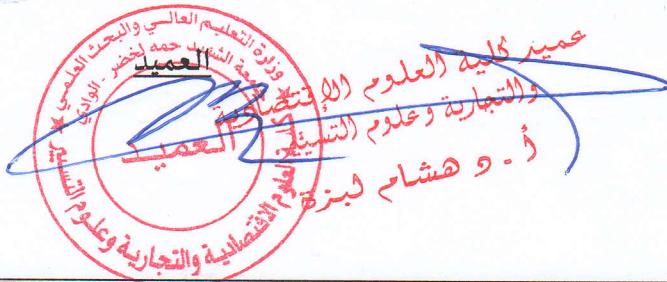 وزارة التعليم العالي والبحث العلمي
جامعة الشهيد حمه لخضر - الوادي
العميد
العميد
كلية العلوم الاقتصادية والتجارية وعلوم التسيير
عميد كلية العلوم الإقتصادية
والتجارية وعلوم التسيير
أ. د هشام لبزة